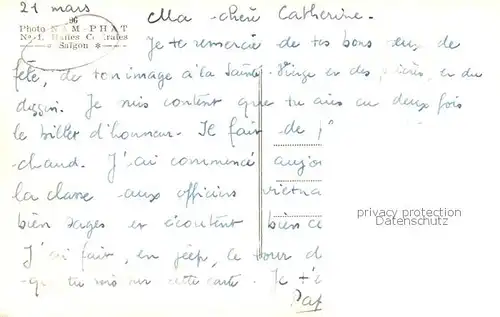 21 mars
96
Photo NAM-PHAT
Nº 1, Halles Centrales
Saïgon
Ma chère Catherine.
Je te remercie de tes bons vœux de
fête, de ton image à la Sainte Vierge et des prières, et du
dessin. Je suis content que tu aies eu deux fois
le billet d'honneur. Il fait de
chaud. J'ai commencé aujo
la classe aux officiers vietna
bien sages et écoutent bien ce
J'ai fait, en jeep, le tour d
que tu vois sur cette carte. Je t'e
Pap
privacy protection
Datenschutz